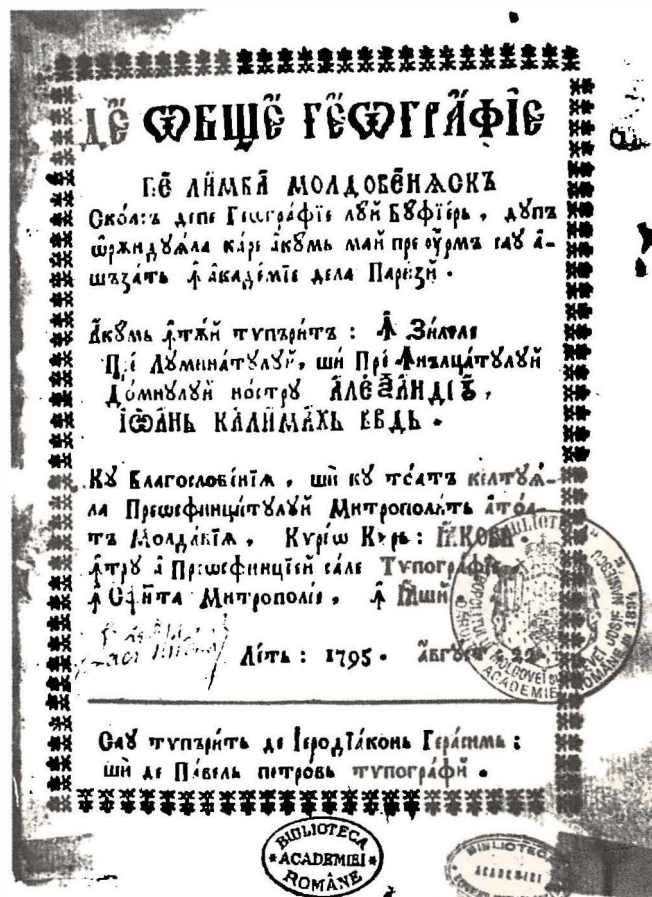 ДЕ ѠБЩЕ ГЕѠГРАФІЕ
ПЕ ЛИМБА МОЛДОВЕНѢСКЪ
Скоасъ депе Геѡграфіе луй Бꙋфіеръ, дꙋпъ
ѡржндꙋѧла каре акꙋмь май пре оурмъ сау а-
шъзать ꙟ академіе дела Парезй.
Акꙋмь ꙟтжй тѵпърить: ꙟ Зилеле
Пре Лꙋминатꙋлꙋй, ши Пре ꙟнълцатꙋлꙋй
Домнꙋлꙋй ностру АЛЕѮАНДРꙋ,
ІѠАНЬ КАЛИМАХЬ ВВДЬ.
Кꙋ Благословеніѧ, ши кꙋ тоатъ келтꙋѧ-
ла Преѡсфинцитꙋлꙋй Митрополить атоа-
тъ Молдавіѧ, Кѵріѡ Кѵрь: ІАКОВЬ.
ꙟтру а Преѡсфинціей сале Тѵпографіе,
ꙟ Сфѫнта Митрополіе, ꙟ ІАШИ.
Лѣть: 1795. Авгꙋст 22
Саꙋ тѵпърить де Іеродіаконь Герасимь:
ши де Павель петровь тѵпографй.
BIBLIOTECA
ACADEMIEI
ROMÂNE
BIBLIOTECA
ACADEMIEI